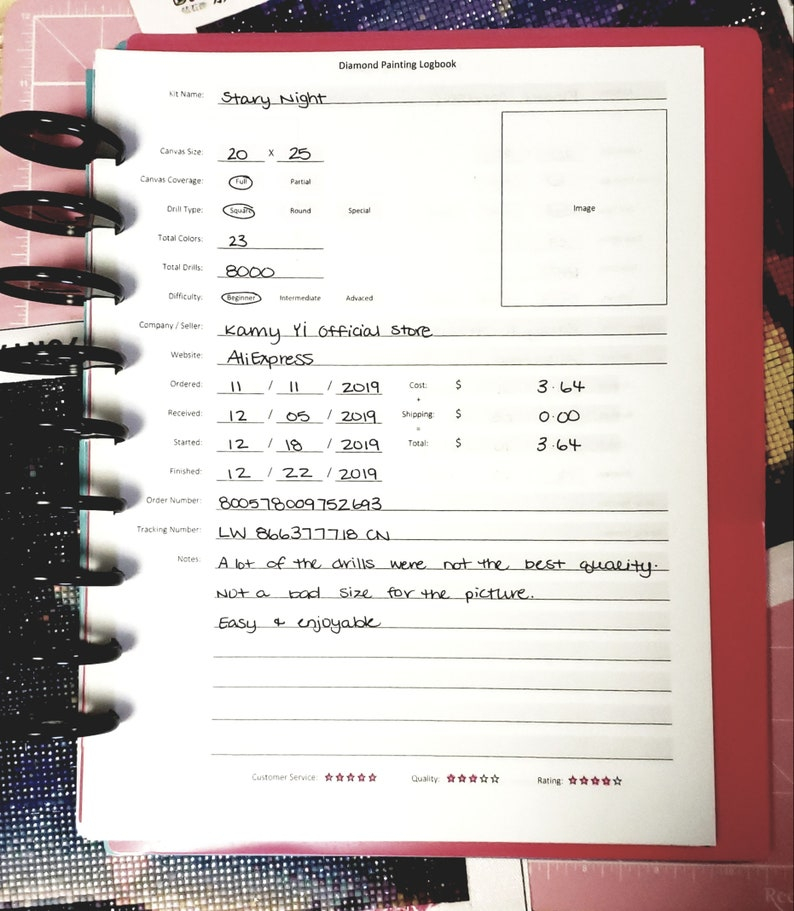 Diamond Painting Logbook
Kit Name: Stary Night
Canvas Size: 20 x 25
Canvas Coverage: Full Partial
Image
Drill Type: Square Round Special
Total Colors: 23
Total Drills: 8000
Difficulty: Beginner Intermediate Advaced
Company / Seller: Kamy Yi Official Store
Website: AliExpress
Ordered: 11 / 11 / 2019 Cost: $ 3.64
+
Received: 12 / 05 / 2019 Shipping: $ 0.00
=
Started: 12 / 18 / 2019 Total: $ 3.64
Finished: 12 / 22 / 2019
Order Number: 800578009752693
Tracking Number: LW 866377718 CN
Notes: A lot of the drills were not the best quality.
Not a bad size for the picture.
Easy & enjoyable
Customer Service: Quality: Rating: